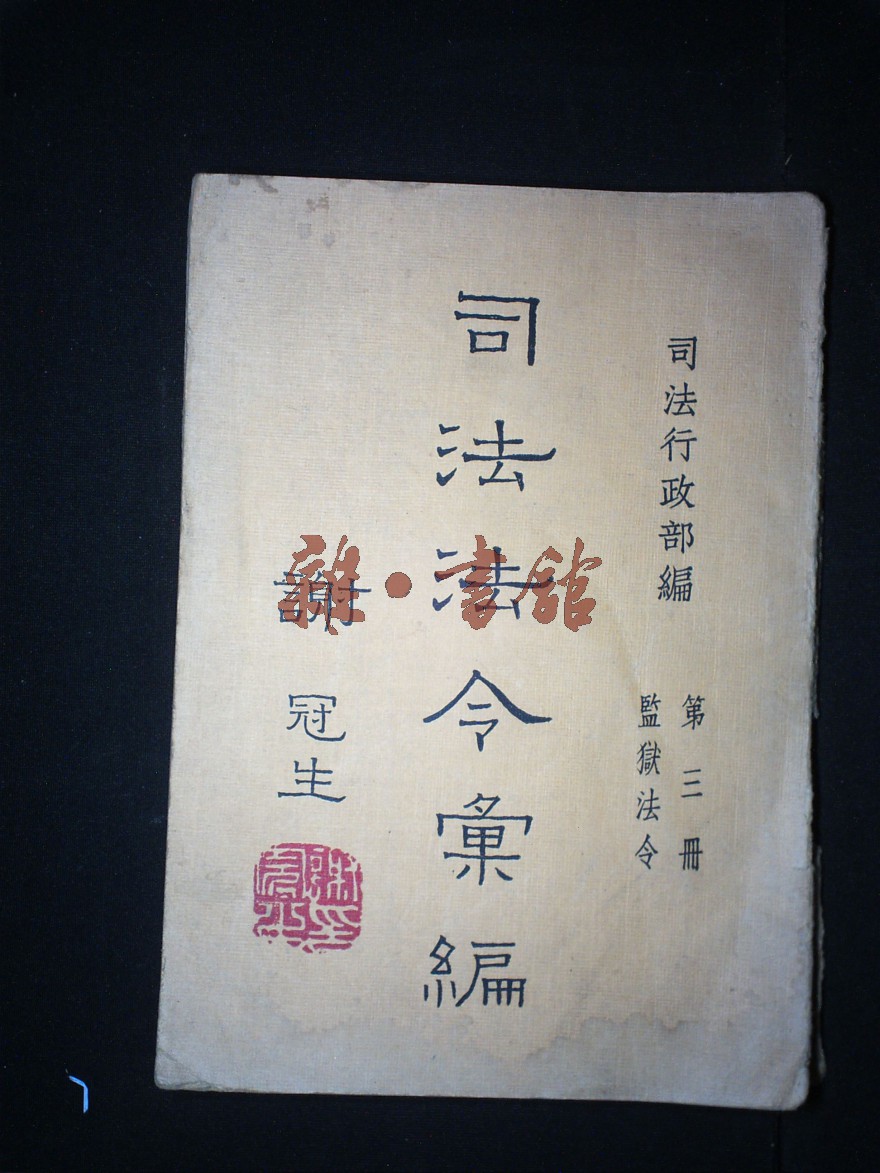 司法行政部編
第三冊
監獄法令
司法法令彙編
謝冠生
雜·書館